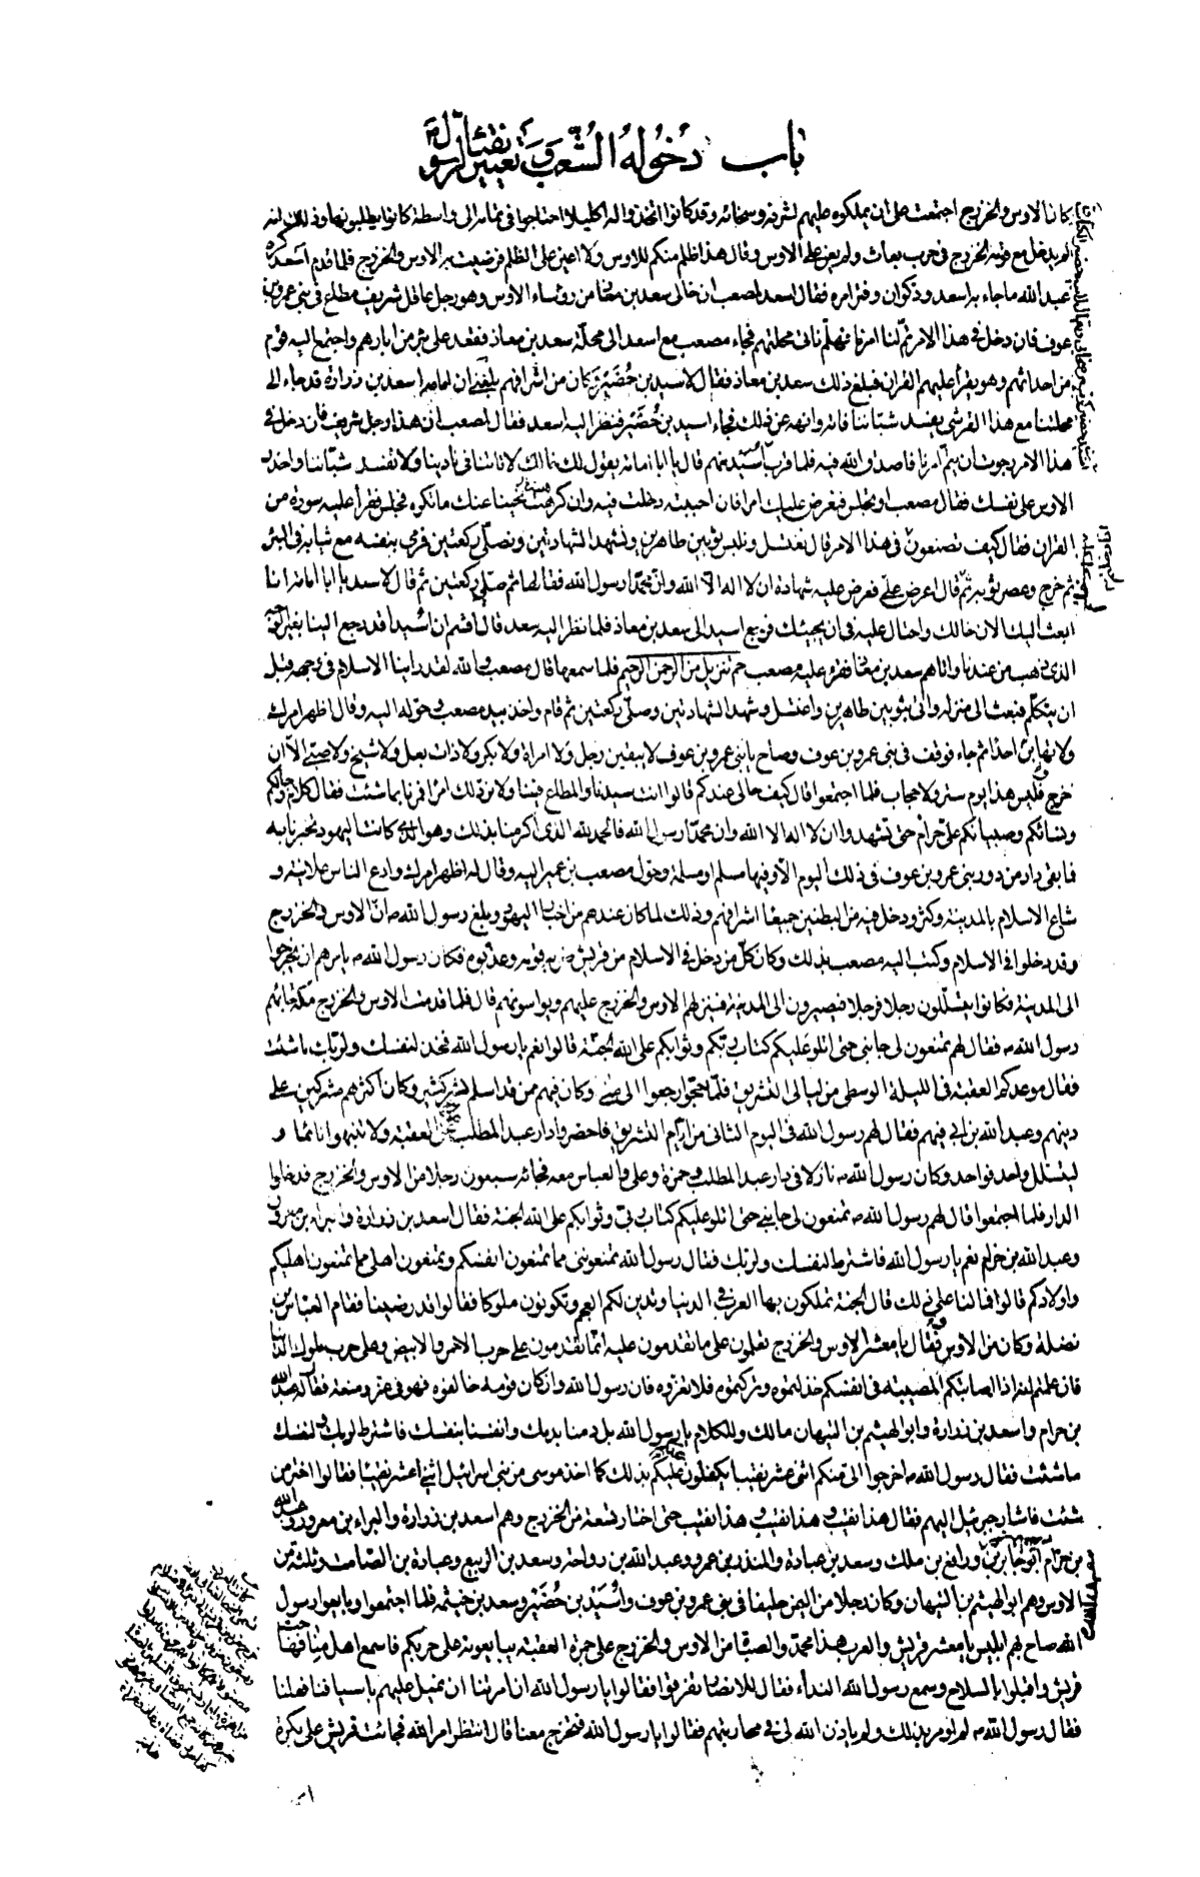 باب دُخُولِهِ الشِّعب وَتَعيين نقبآء الرسول
كانا الاوس والخزرج اجتمعت على ان يملكوه عليهم لشرفه وسخائه وقد كانوا اتخذوا له اكليلا احتاجوا فى تمامه الى واسطة كانوا يطلبونها وذلك انه
لم يدخل مع قومه الخزرج فى حرب بعاث ولم يعن على الاوس وقال هذا ظلم منكم للاوس ولا اعين على الظلم فرضيت به الاوس والخزرج فلما قدم اسعد كره
عبد الله ما جاء به اسعد وذكوان وفتر امره فقال اسعد لمصعب ان خالى سعد بن معاذ من رؤساء الاوس وهو رجل عاقل شريف مطاع فى بنى عمرو بن
عوف فان دخل فى هذا الامر تمّ لنا امرنا فهلمّ نأتى محلتهم فجاء مصعب مع اسعد الى محلّة سعد بن معاذ فقعد على بئر من ابارهم واجتمع اليه قوم
من احداثهم وهو يقرأ عليهم القران فبلغ ذلك سعد بن معاذ فقال لاسيد بن حُضَيْر وكان من اشرافهم بلغنى ان ابا امامه اسعد بن زرارة قد جاء الى
محلتنا مع هذا القرشى يفسد شبّاننا فاته وانهه عن ذلك فجاء اسيد بن حُضَيْر فنظر اليه اسعد فقال لمصعب ان هذا رجل شريف فان دخل فى
هذا الامر رجوت ان يتم امرنا فاصدق الله فيه فلما قرب اُسيد منهم قال يا ابا امامة يقول لك خالك لا تاتنا فى نادينا ولا تفسد شبّاننا واحذر
الاوس على نفسك فقال مصعب او تجلس فنعرض عليك امرا فان احببته دخلت فيه وان كرهته نحّينا عنك ما تكره فجلس فقرأ عليه سورة من
القران فقال كيف تصنعون فى هذا الامر قال نغتسل ونلبس ثوبين طاهرين ونشهد الشهادتين ونصلّى ركعتين فرمى بنفسه مع ثيابه فى البئر
ثم خرج وعصر ثوبه ثمّ قال اعرض علىّ فعرض عليه شهادة ان لا اله الّا الله وانّ محمّدا رسول الله فقالها ثم صلّى ركعتين ثم قال لاسعد يا ابا امامة انا
ابعث اليك الان خالك واحتال عليه فى ان يجيئك فرجع اسيد الى سعد بن معاذ فلما نظر اليه سعد قال اقسم ان اُسيدا قد رجع الينا بغير الوجه
الذى ذهب من عندنا واتاهم سعد بن معاذ فقرء عليه مصعب حم تنزيل من الرحمن الرحيم فلما سمعها قال مصعب والله لقد راينا الاسلام فى وجهه قبل
ان يتكلّم فبعث الى منزله واتى بثوبين طاهرين واغتسل وشهد الشهادتين وصلّى ركعتين ثم قام واخذ بيد مصعب وحوّله اليه وقال اظهر امرك
ولا تهابنّ احدا ثم جاء فوقف فى بنى عمرو بن عوف وصاح يا بنى عمرو بن عوف لا يبقين رجل ولا امراة ولا بكر ولا ذات بعل ولا شيخ ولا صبىّ الّا ان
خرج فليس هذا يوم ستر ولا حجاب فلما اجتمعوا قال كيف حالى عندكم قالوا انت سيدنا والمطاع فينا ولا نرد لك امرا فمرنا بما شئت فقال كلام رجالكم
ونسائكم وصبيانكم علىّ حرام حتى تشهدوا ان لا اله الا الله وان محمّدا رسول الله فالحمد لله الذى اكرمنا بذلك وهو الذى كانت اليهود تخبرنا به
فما بقى دار من دور بنى عمرو بن عوف فى ذلك اليوم الّا وفيها مسلم او مسلمة وحوّل مصعب بن عمير اليه وقال له اظهر امرك وادع الناس علانية و
شاع الاسلام بالمدينة وكثر ودخل فيه من البطنين جميعا اشرافهم وذلك لما كان عندهم من اخبار اليهود وبلغ رسول الله ص انّ الاوس والخزرج
وقد دخلوا فى الاسلام وكتب اليه مصعب بذلك وكان كلّ من دخل فى الاسلام من قريش ضربه قومه وعذبوه فكان رسول الله ص يامرهم ان يخرجوا
الى المدينة فكانوا يتسلّلون رجلا فرجلا فيصيرون الى المدينة فينزلهم الاوس والخزرج عليهم ويواسونهم قال فلما قدمت الاوس والخزرج مكة جاءهم
رسول الله ص فقال لهم تمنعون لى جانبى حتى اتلو عليكم كتاب ربّكم وثوابكم على الله الجنّة قالوا نعم يا رسول الله فخذ لنفسك ولربّك ما شئت
فقال موعدكم العقبة فى الليلة الوسطى من ليالى التشريق فلمّا حجّوا رجعوا الى منى وكان فيهم ممن قد اسلم بشر كثير وكان اكثرهم مشركين على
دينهم وعبد الله بن ابى فيهم فقال لهم رسول الله فى اليوم الثانى من ايام التشريق فاحضروا دار عبد المطلب على العقبة ولا تنبهوا نائما و
ليتسلل واحد فواحد وكان رسول الله ص نازلا فى دار عبد المطلب وحمزة وعلى والعباس معه فجائه سبعون رجلا من الاوس والخزرج فدخلوا
الدار فلما اجتمعوا قال لهم رسول الله ص تمنعون لى جانبى حتى اتلو عليكم كتاب ربّى وثوابكم على الله الجنة فقال اسعد بن زرارة والبراء بن معرور
وعبد الله بن حرام نعم يا رسول الله فاشترط لنفسك ولربّك فقال رسول الله تمنعوننى مما تمنعون انفسكم وتمنعون اهلى مما تمنعون اهليكم
واولادكم قالوا فما لنا على ذلك قال الجنة تملكون بها العرب فى الدنيا وتدين لكم العجم وتكونون ملوكا فقالوا قد رضينا فقام العباس بن
نضلة وكان من الاوس فقال يا معشر الاوس والخزرج تعلمون على ما تقدمون عليه انّما تقدمون على حرب الاحمر والابيض وعلى حرب ملوك الدنيا
فان علمتم انه اذا اصابتكم المصيبة فى انفسكم خذلتموه وتركتموه فلا تغروه فان رسول الله وان كان قومه خالفوه فهو فى عز ومنعة فقال له عبد الله
بن حرام واسعد بن زرارة وابو الهيثم بن التيهان ما لك وللكلام يا رسول الله بل دمنا بدمك وانفسنا بنفسك فاشترط لربك ولنفسك
ما شئت فقال رسول الله ص اخرجوا الى منكم اثنى عشر نقيبا يكفلون عليكم بذلك كما اخذ موسى من بنى اسرائيل اثنى عشر نقيبا فقالوا اختر من
شئت فاشار جبرئيل اليهم فقال هذا نقيب وهذا نقيب وهذا نقيب حتى اختار تسعة من الخزرج وهم اسعد بن زرارة والبراء بن معرور وعبد الله
بن حرام ابو جابر ورافع بن ملك وسعد بن عبادة والمنذر بن عمرو وعبد الله بن رواحة وسعد بن الربيع وعبادة بن الصّامت وثلثة من
الاوس وهم ابو الهيثم بن التيهان وكان رجلا من اليمن حليفا فى بنى عمرو بن عوف واُسَيْد بن حُضَيْر وسعد بن خيثمه فلما اجتمعوا وبايعوا رسول
الله صاح لهم ابليس يا معشر قريش والعرب هذا محمّد والصباة من الاوس والخزرج على جمرة العقبة يبايعونه على حربكم فاسمع اهل منى فهاجت
قريش واقبلوا بالسلاح وسمع رسول الله النداء فقال للانصار تفرقوا فقالوا يا رسول الله ان امرتنا ان نميل عليهم باسيافنا فعلنا
فقال رسول الله ص لم اومر بذلك ولم ياذن الله لى فى محاربتهم فقالوا يا رسول الله فتخرج معنا قال انتظر امر الله فجائت قريش على بكرة